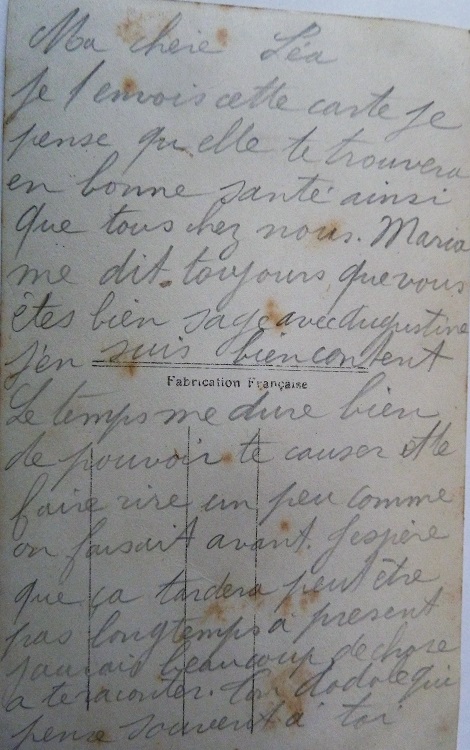 Ma cheie Léa
je t'envois cette carte je
pense qu'elle te trouvera
en bonne santé ainsi
que tous chez nous. Maria
me dit toujours que vous
êtes bien sage avec Augustine
j'en suis bien content
Fabrication Française
Le temps me dure bien
de pouvoir te causer et te
faire rire un peu comme
on faisait avant. J'espère
que ça tardera peut être
pas longtemps a present
jaurais beaucoup de chose
a te raconter. Ton dodole qui
pense souvent a toi